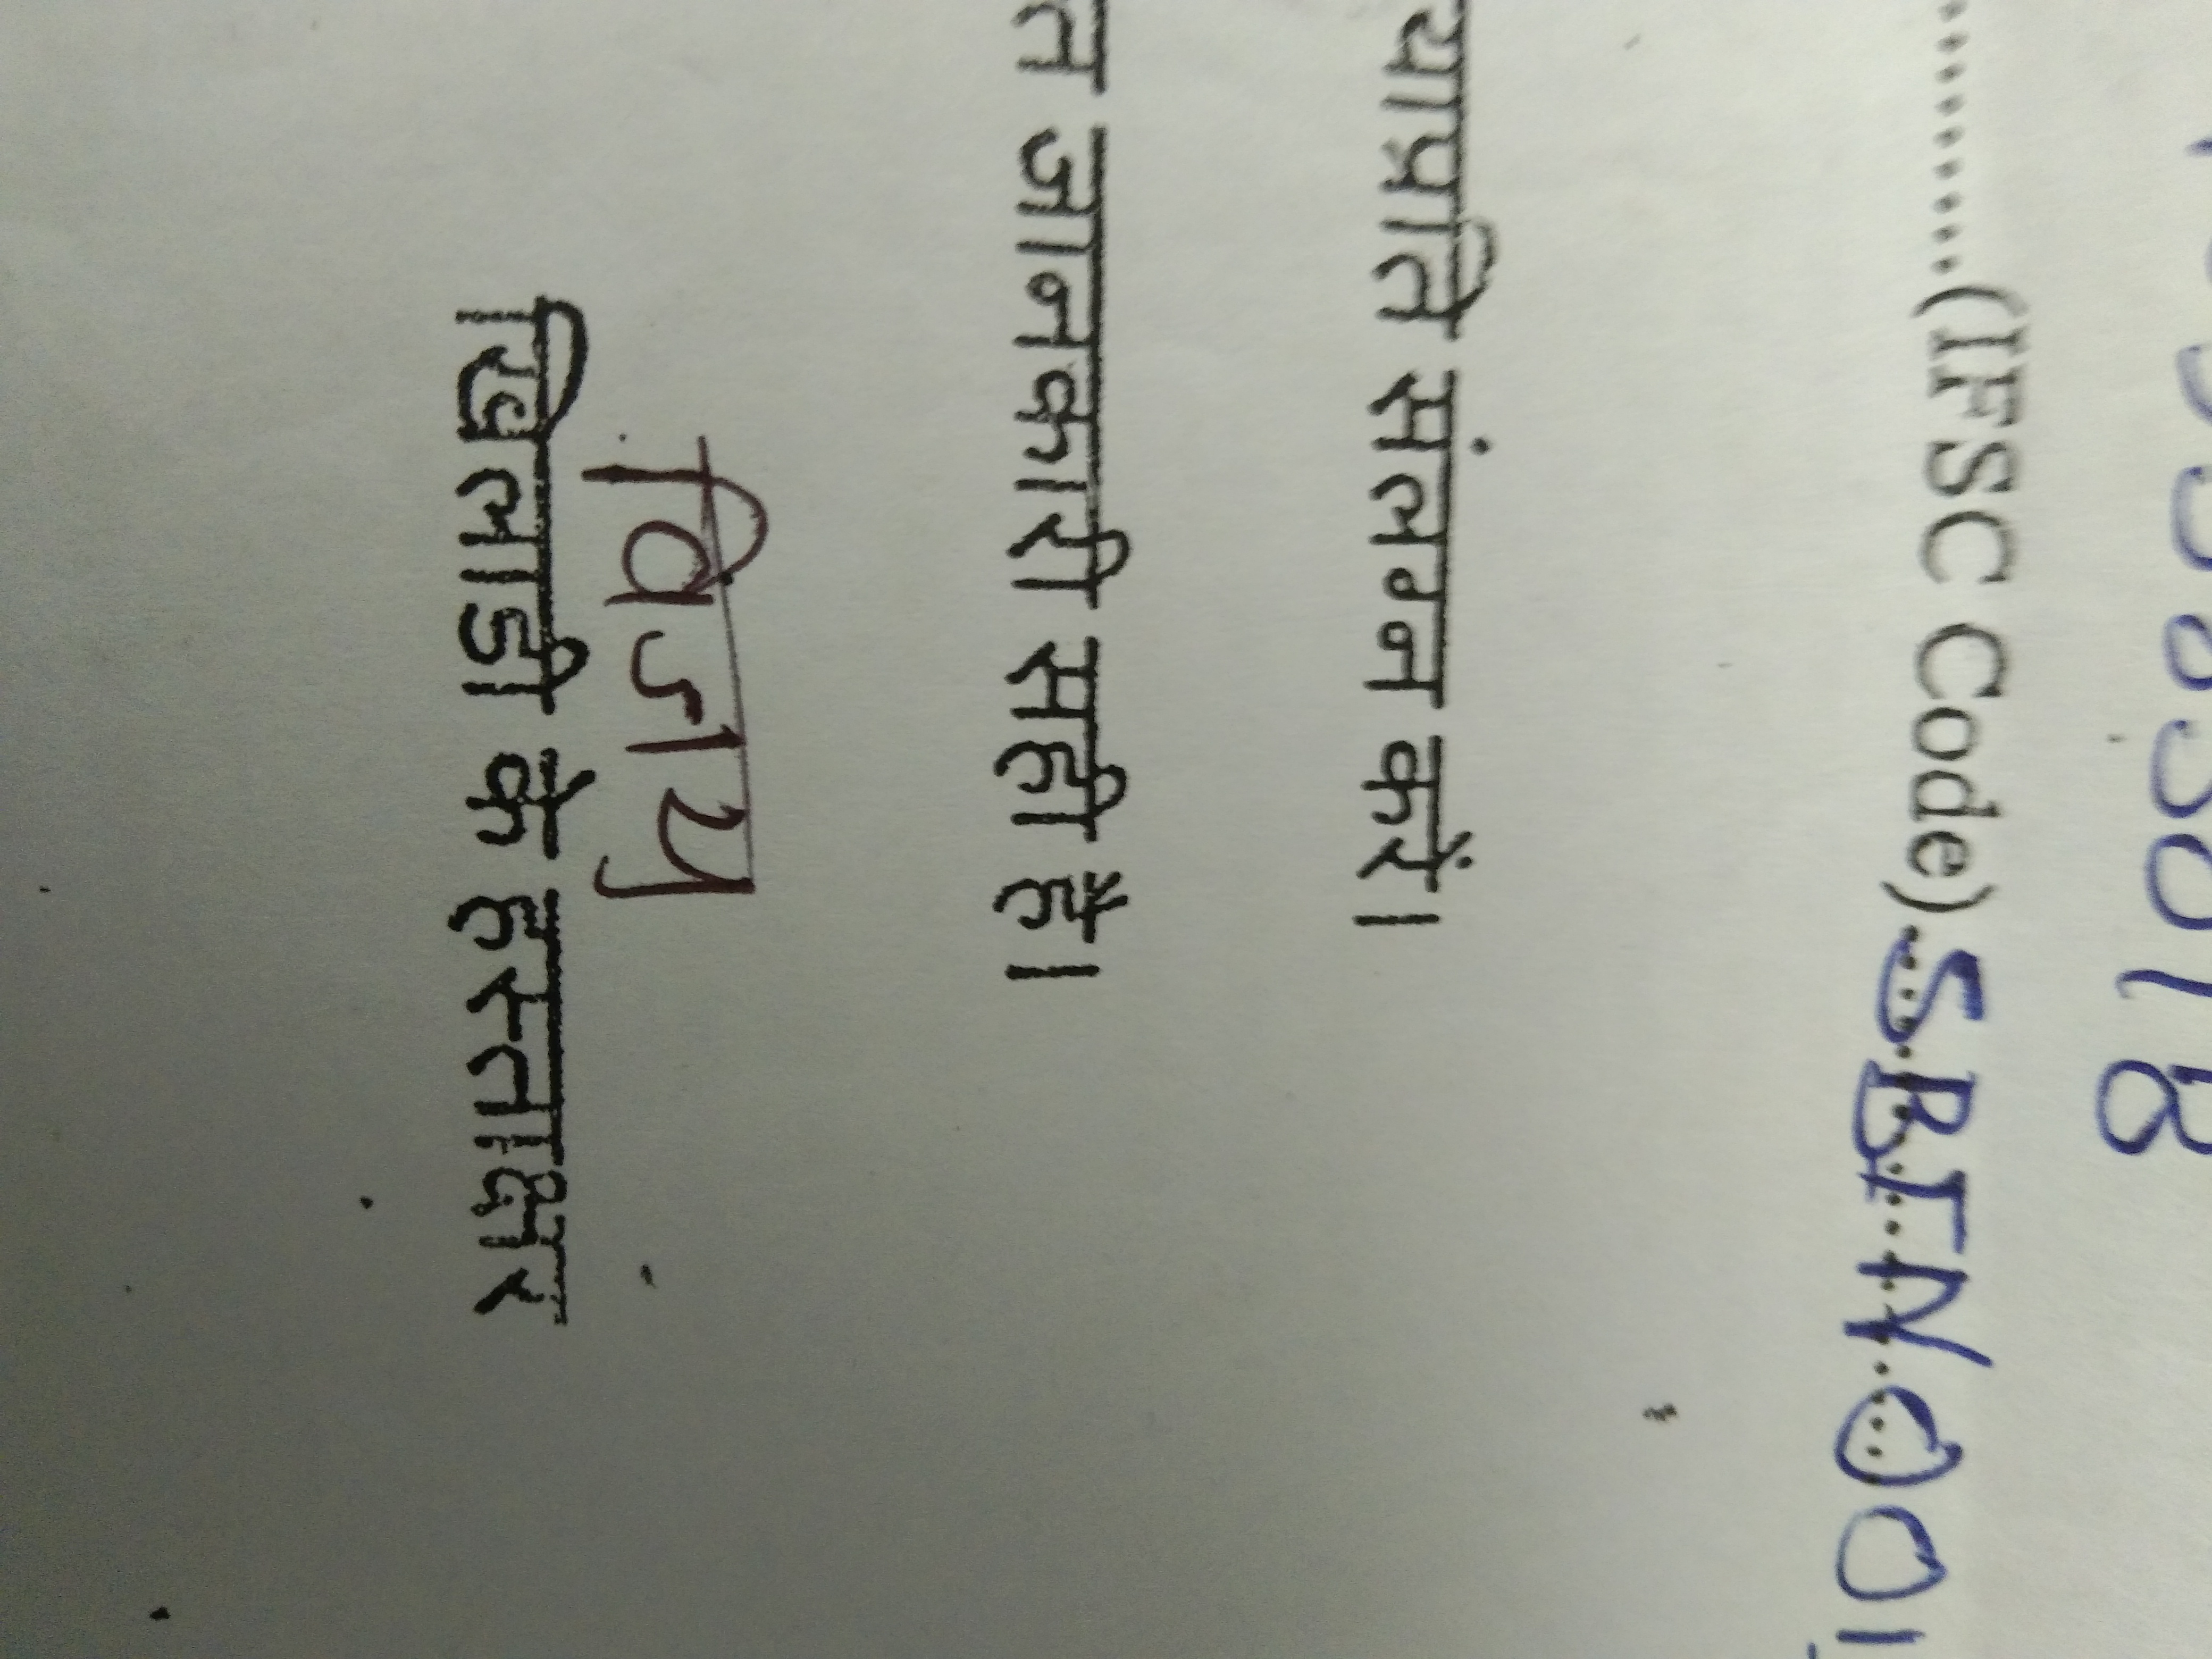 (IFSC Code) SBIN001
संलग्न करें।
जानकारी सही है।
विजय
खिलाडी के हस्ताक्षर